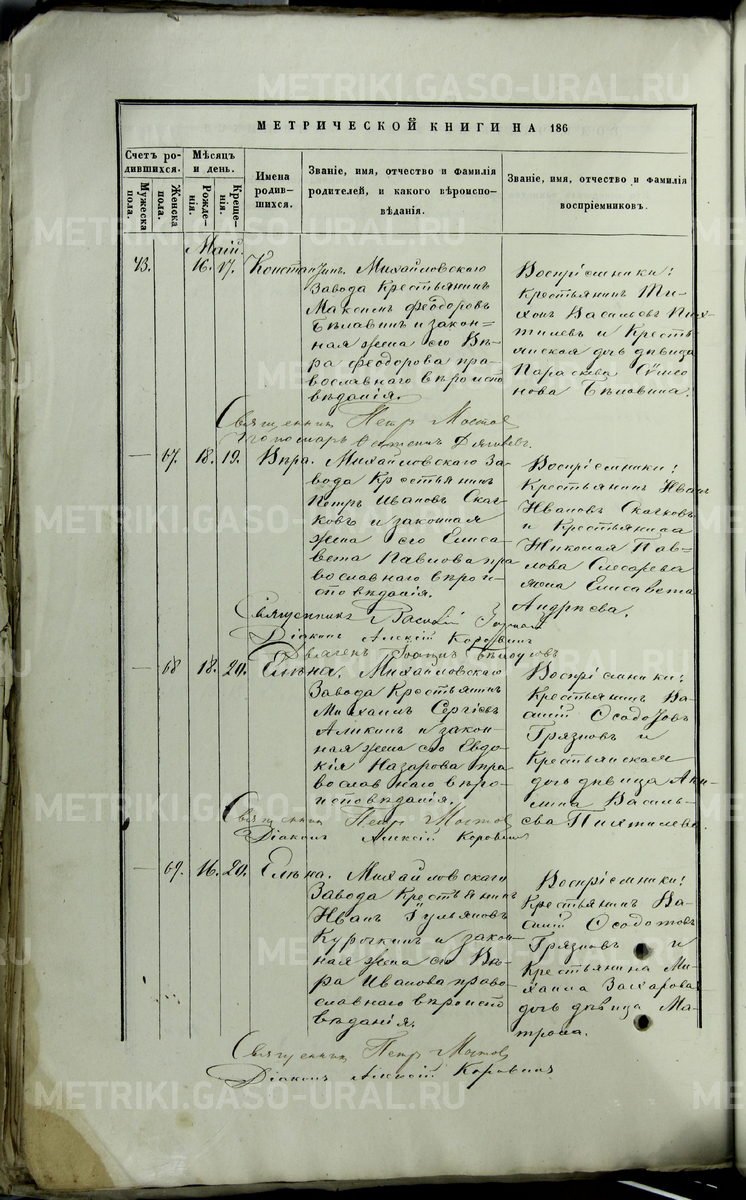 МЕТРИЧЕСКОЙ КНИГИ НА 186
Счетъ родившихся.
Мѣсяцъ и день.
Имена родившихся.
Званіе, имя, отчество и фамилія родителей, и какого вѣроисповѣданія.
Званіе, имя, отчество и фамилія воспріемниковъ.
Мужеска пола.
Женска пола.
Рожденія.
Крещенія.
Маій.
73.
16.
17.
Константинъ.
Михайловскаго
Завода Крестьянинъ
Максимъ Феодоровъ
Бѣлавинъ и закон=
ная жена его Вѣ=
ра Феодорова пра=
вославнаго вѣроиспо
вѣданія.
Воспріемники:
Крестьянинъ Ти=
хонъ Васильевъ Пих=
тилевъ и Кресть=
янская дочь дѣвица
Параскева
нова Бѣлавина.
Священникъ Петръ Мостов
Пономарь Дягилевъ.
67.
18.
19.
Вѣра.
Михайловскаго За=
вода Крестьянинъ
Петръ Ивановъ Скач=
ковъ и законная
жена его Елиса=
вета Павлова пра
вославнаго вѣрои=
споведанія.
Воспріемники:
Крестьянинъ Иванъ
Ивановъ Скачковъ
и Крестьянина
Николая Пав=
лова Слесарева
жена Елисавета
Андрѣева.
Священникъ Василій
Діаконъ Алексій Коровинъ
68
18.
20.
Елѣна.
Михайловскаго
Завода Крестьянинъ
Михаилъ Сергіевъ
Аликинъ и закон=
ная жена его Евдо=
кія Назарова пра=
вославнаго вѣро=
исповѣданія.
Воспріемники:
Крестьянинъ Ва=
силій Ѳеодотовъ
Грязновъ и
Крестьянская
дочь дѣвица Аки=
лина Василь=
ева Пихтилева
Священникъ Петръ Мостов
Діаконъ Алексій Коровинъ
69.
16.
20.
Елѣна.
Михайловскаго
Завода Крестьянинъ
Иванъ Гульяновъ
Курочкинъ и закон=
ная жена его Вѣ=
ра Иванова право=
славнаго вѣроиспо
вѣданія.
Воспріемники:
Крестьянинъ Ва=
силій Ѳеодотовъ
Грязновъ и
Крестьянина Ми=
хаила Захарова
дочь дѣвица Ма=
трона.
Священникъ Петръ Мостов
Діаконъ Алексій Коровинъ
METRIKI.GASO-URAL.RU